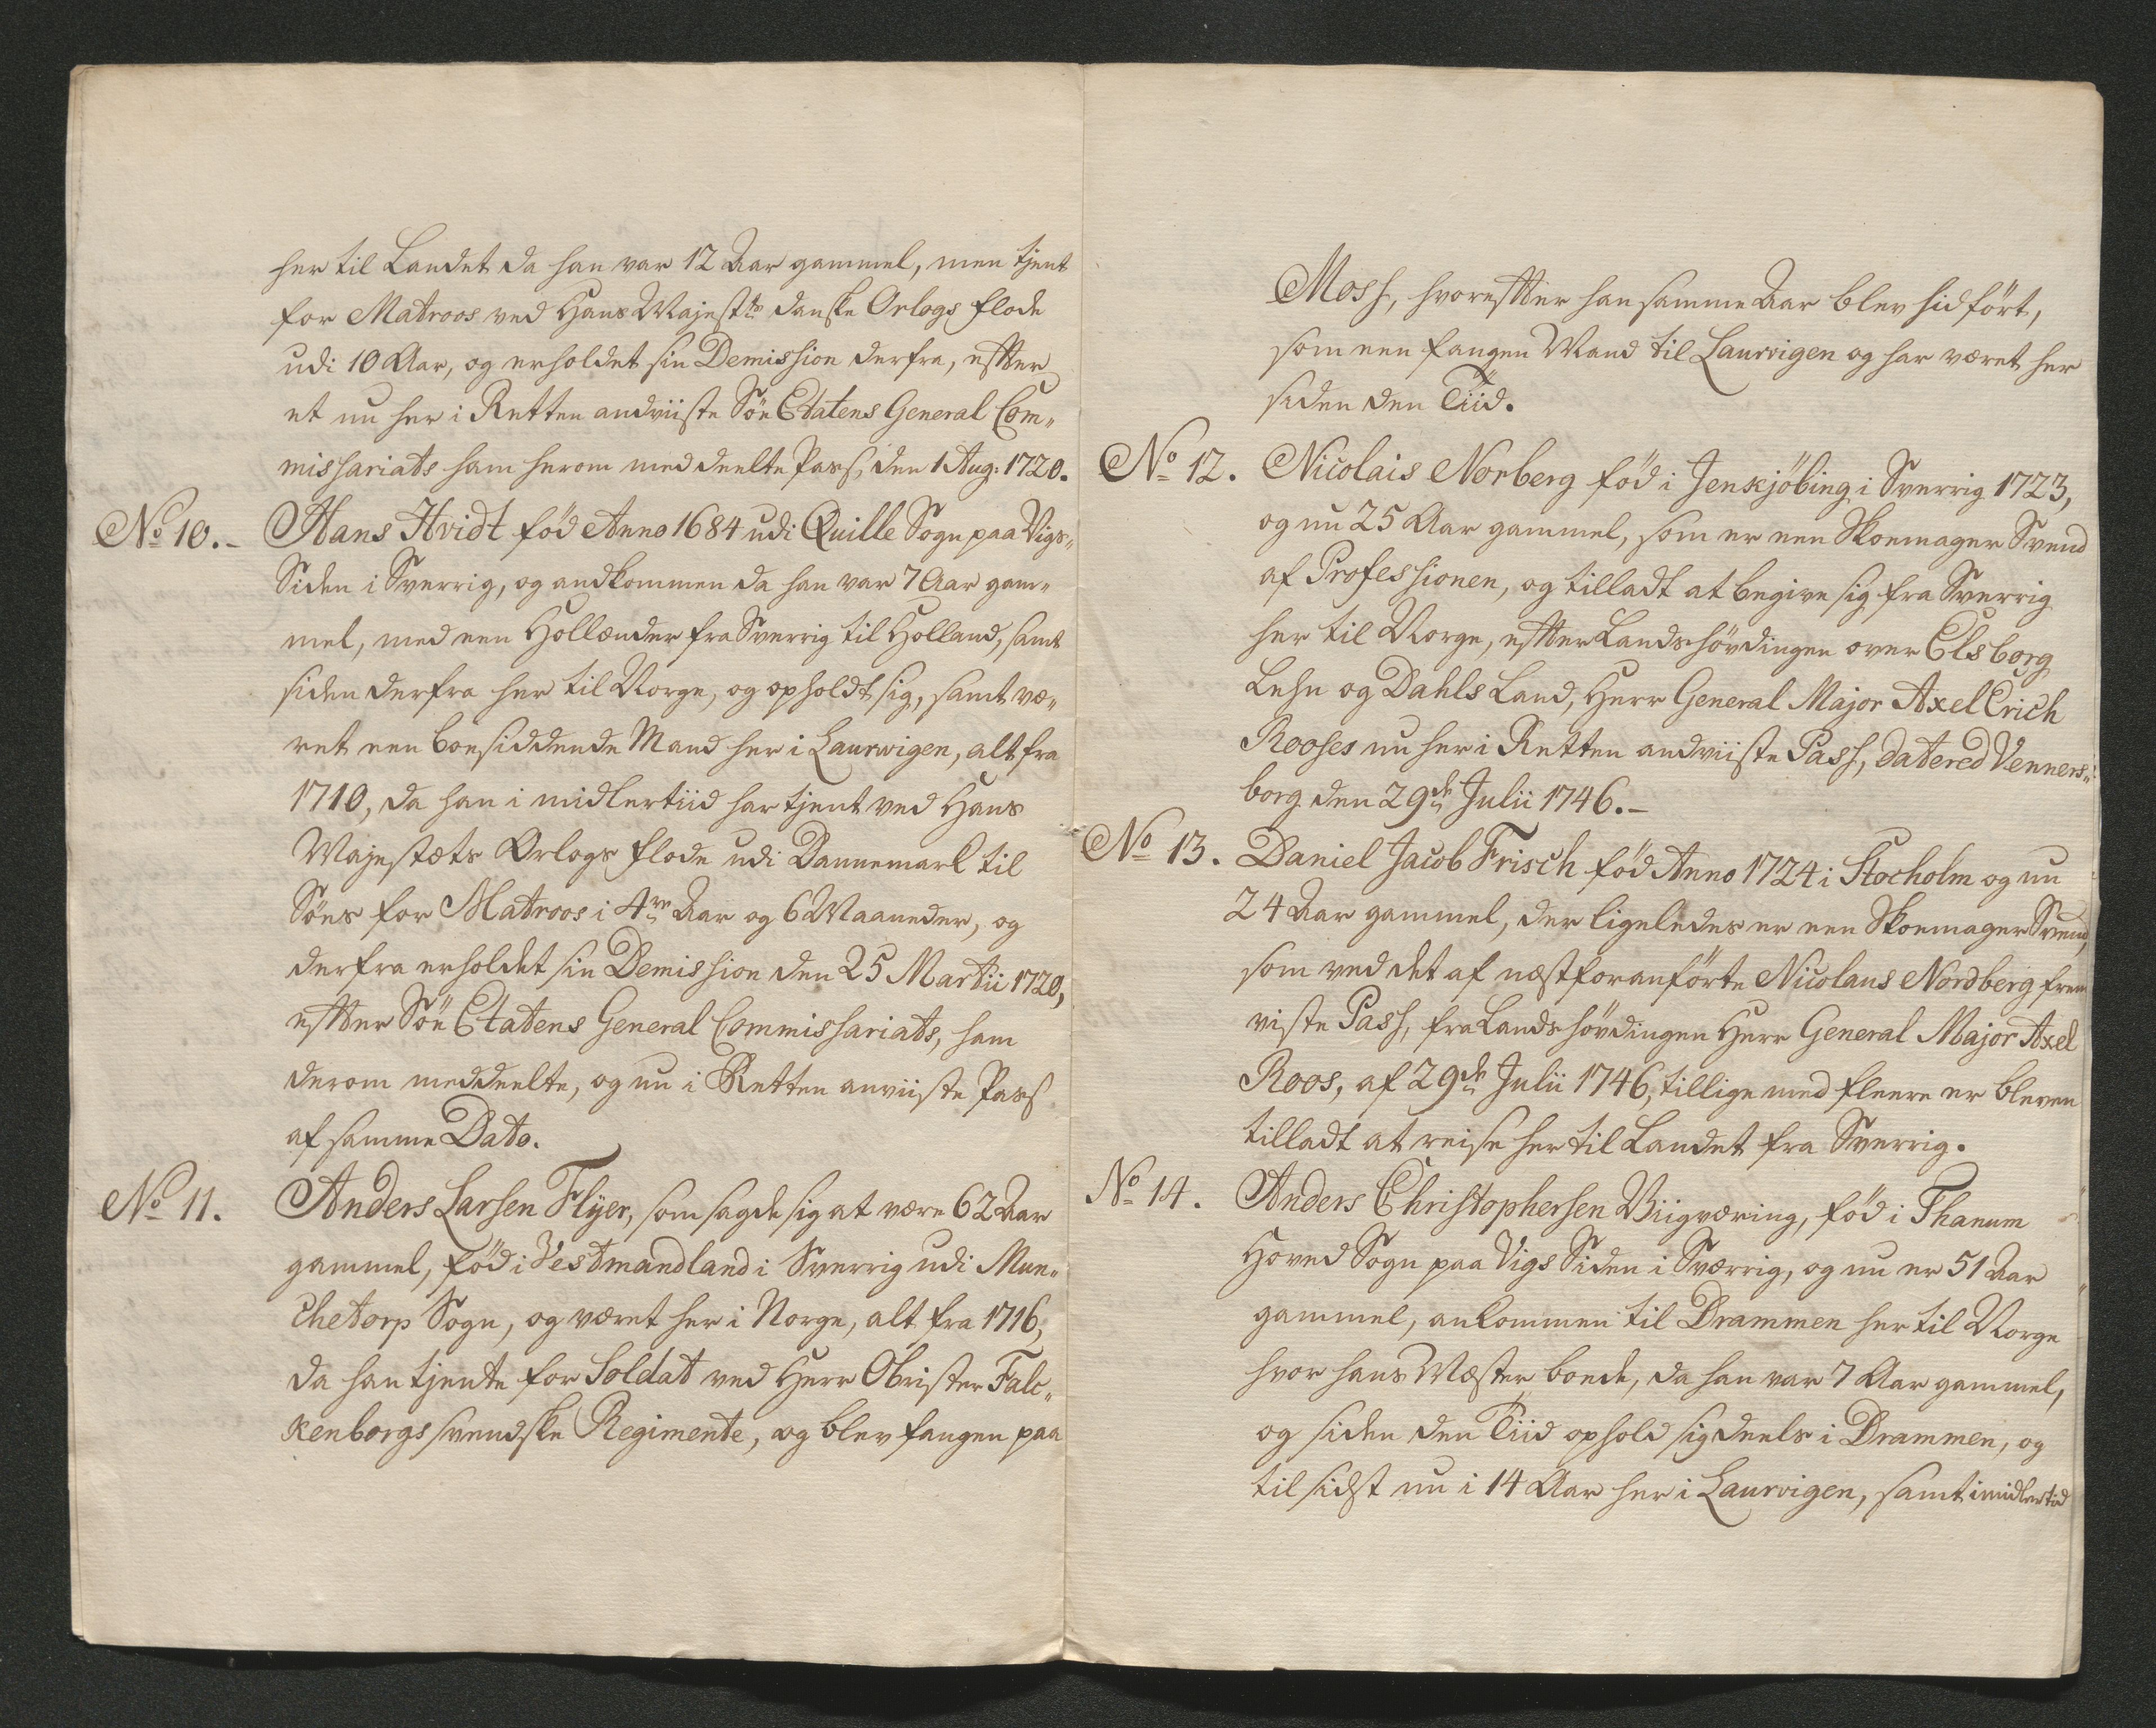 her til Landet da han var 12 Aar gammel, men tjent
for Matroos ved Hans Majest:ts danske Orlogs flode
udi 10 Aar, og erholdet sin Demission derfra, efter
et nu her i Retten andviiste Söe Etatens General Com„
missariats ham herom meddeelte Pass, den 1 Aug: 1720.
No 10. Hans Hvidt föd Anno 1684 udi Quille Sogn paa Vigs„
Siden i Sverrig, og andkommen da han var 7 Aar gam„
mel, med een Hollænder fra Sverrig til Holland, samt
siden derfra her til Norge, og opholdt sig, samt væ„
ret een boesiddende Mand her i Laurwigen, alt fra
1710, da han i midlertiid har tjent ved Hans
Majestæts Orlogs flode udi Dannemark til
Söes for Matroos i 4re Aar og 6 Maaneder, og
derfra erholdet sin Demission den 25 Martii 1720,
efter Söe Etatens General Commissariats, ham
derom meddeelte, og nu i Retten anviiste Pass
af samme Dato.
No 11. Anders Larsen Flyer, som sagde sig at være 62 Aar
gammel, föd i Vestmandland i Sverrig udi Mun„
chetorp Sogn, og været her i Norge, alt fra 1716,
da han tjente for Soldat ved Herr Obrister Falc„
kenborgs svendske Regimente, og blev fangen paa
Moss, hvorefter han samme Aar blev hidfört,
som een fangen Mand til Laurvigen og har været her
siden den Tiid.
No 12. Nicolais Norberg föd i Jenskjöbing i Sverrig 1723,
og nu 25 Aar gammel, som er een Skoemager Svend
af Professionen, og tilladt at begive sig fra Sverrig
her til Norge, efter Landshövdingen over Elsborg
Lehn og Dahls Land, Herr General Major Axel Erich
Rooses nu her i Retten andviiste Pass, datered Venners„
borg den 29de Julii 1746.
No 13. Daniel Jacob Frisch föd Anno 1724 i Stocholm og nu
24 Aar gammel, der ligeledes er een Skoemager Svend,
som ved det af næstforanförte Nicolaus Nordberg frem
viste Pass, fra Landshövdingen Herr General Major Axel
Roos, af 29de Julii 1746, tillige med fleere er bleven
tilladt at reise her til Landet fra Sverrig.
No 14. Anders Christophersen Viigværing, föd i Thanum
Hoved Sogn paa Vigs Siden i Sværrig, og nu er 51 Aar
gammel, ankommen til Drammen her til Norge
hvor hans Mester boede, da han var 7 Aar gammel,
og siden den Tiid ophold sig deels i Drammen, og
til sidst nu i 14 Aar her i Laurvigen, samt imidlertid